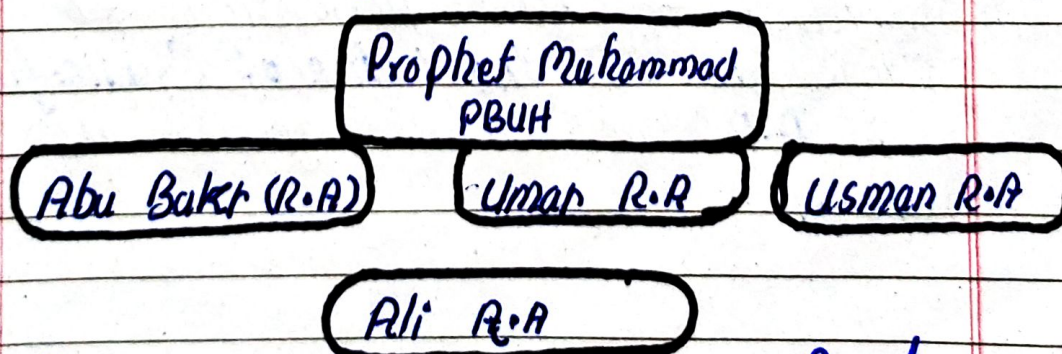 Prophet Muhammad
PBUH
Abu Bakr (R.A)
Umar R.A
Usman R.A
Ali R.A